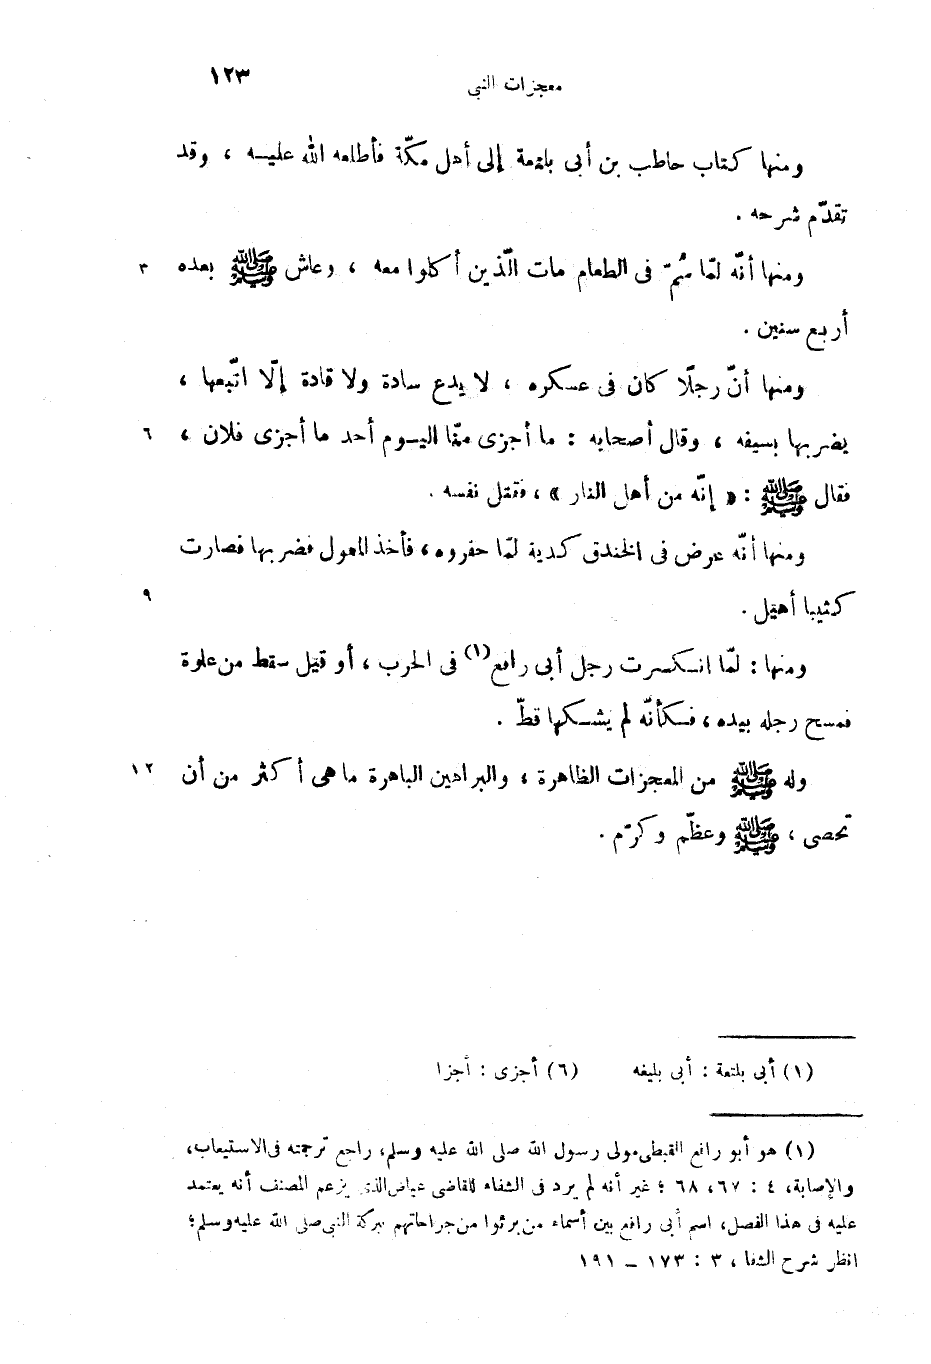 معجزات النبى ١٢٣
ومنها كتاب حاطب بن أبى بلتعة إلى أهل مكّة فأطلعه الله عليه ، وقد
تقدّم شرحه .
ومنها أنّه لمّا سُمّ فى الطعام مات الّذين أكلوا معه ، وعاش ﷺ بعده ٣
أربع سنين .
ومنها أنّ رجلًا كان فى عسكره ، لا يدع سادة ولا قادة إلّا اتّبعها ،
يضربها بسيفه ، وقال أصحابه : ما أجزى منّا اليوم أحد ما أجزى فلان ، ٦
فقال ﷺ : « إنّه من أهل النار » ، فقتل نفسه .
ومنها أنّه عرض فى الخندق كدية لمّا حفروه ، فأخذ المعول فضربها فصارت
كثيبا أهيل . ٩
ومنها : لمّا انكسرت رجل أبى رافع(١) فى الحرب ، أو قيل سقط من علوة
فمسح رجله بيده ، فكأنّه لم يشكها قطّ .
وله ﷺ من المعجزات الظاهرة ، والبراهين الباهرة ما هى أكثر من أن ١٢
تحصى ، ﷺ وعظّم وكرّم .
(١) أبى بلتعة : أبى بليغه (٦) أجزى : أجزا
(١) هو أبو رافع القبطى مولى رسول الله صلى الله عليه وسلم، راجع ترجمته فى الاستيعاب،
والإصابة، ٤ : ٦٧، ٦٨ ؛ غير أنه لم يرد فى الشفاء للقاضى عياض الذى يزعم المصنف أنه يعتمد
عليه فى هذا الفصل، اسم أبى رافع بين أسماء من برئوا من جراحاتهم ببركة النبى صلى الله عليه وسلم؛
انظر شرح الشفا ، ٣ : ١٧٣ – ١٩١